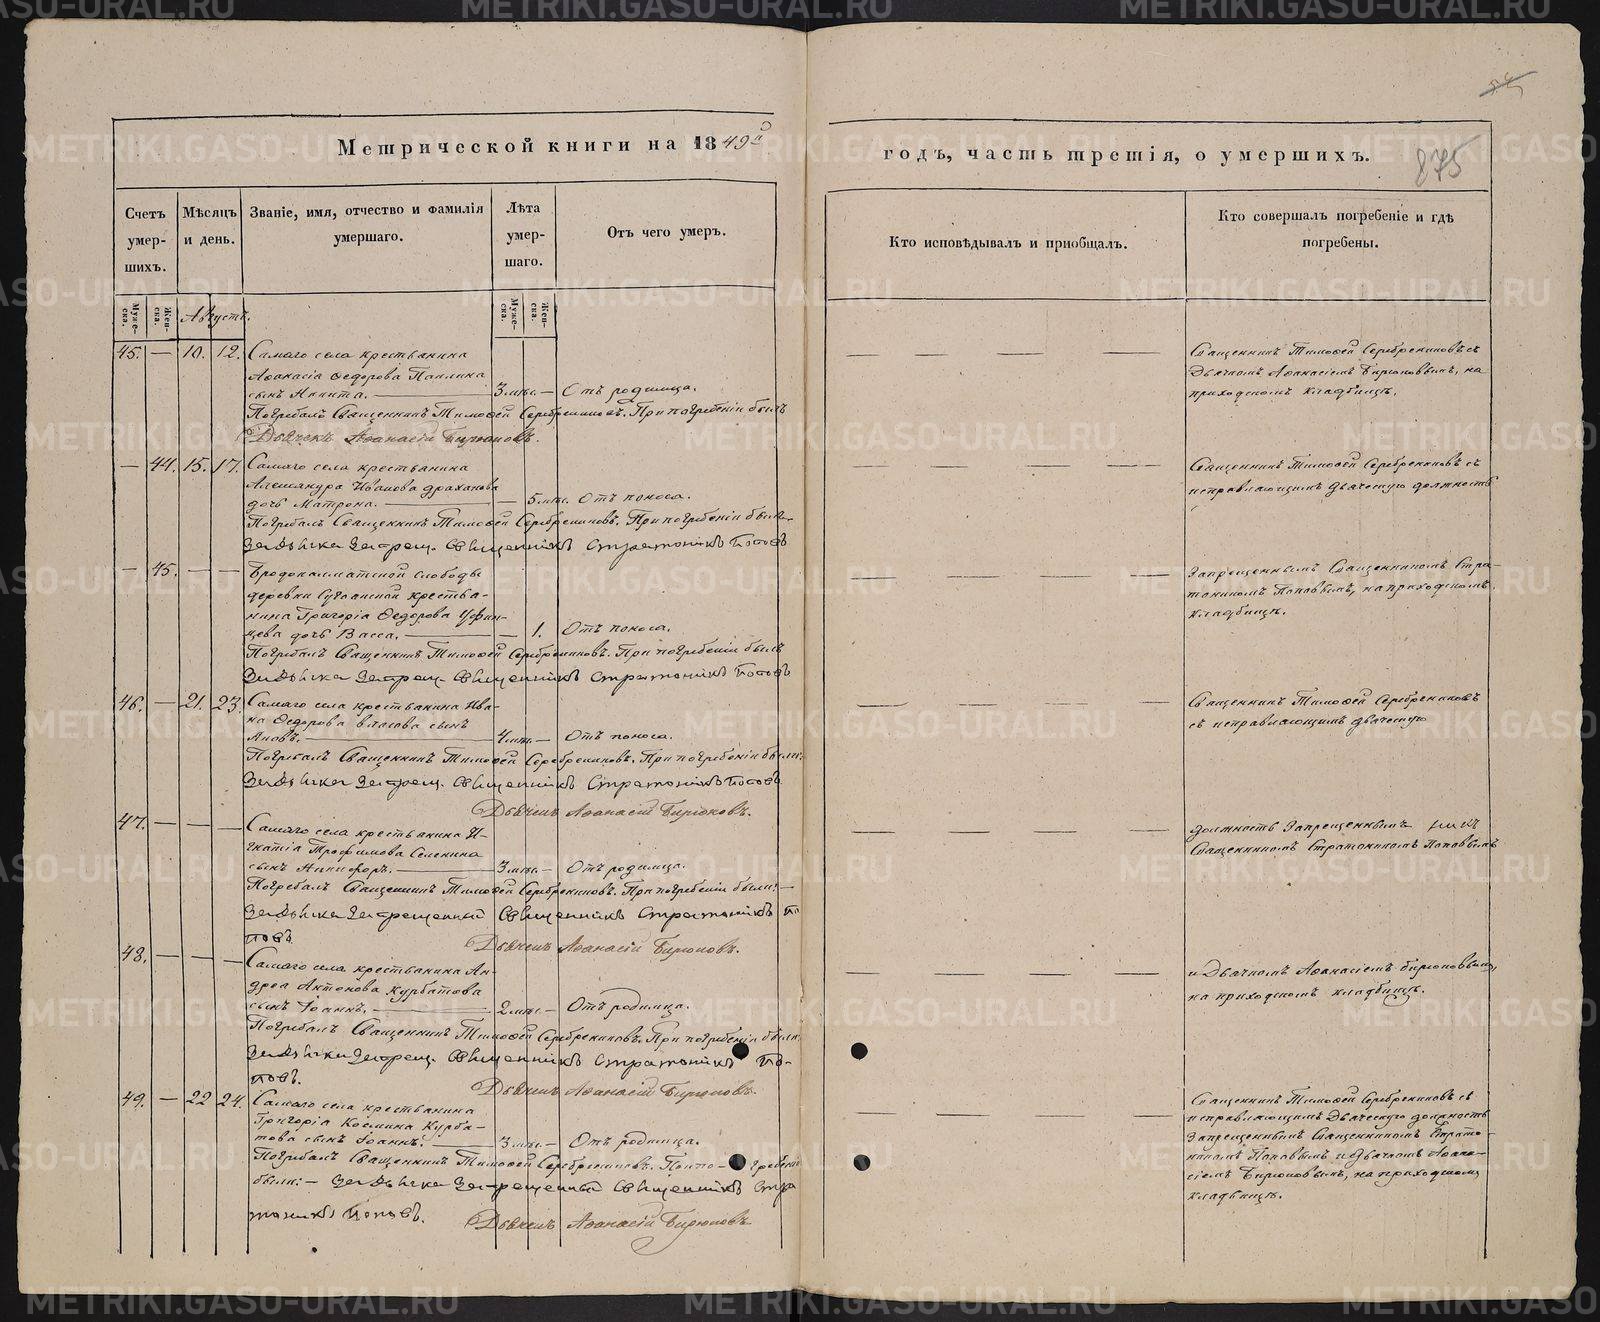 Метрической книги на 1849й
годъ, часть третія, о умершихъ.
875
Счетъ умер-
шихъ.
Мѣсяцъ
и день.
Званіе, имя, отчество и фамилія
умершаго.
Лѣта
умер-
шаго.
Отъ чего умеръ.
Кто исповѣдывалъ и пріобщалъ.
Кто совершалъ погребеніе и гдѣ
погребены.
Муже-
ска.
Жен-
ска.
Августъ.
Муже-
ска.
Жен-
ска.
45. — 10. 12. Самаго села крестьянина
Аѳанасія Ѳедорова
сынъ Никита. — 3 мѣс. — Отъ родимца.
Погребалъ Священникъ Тимоѳей Серебрениковъ. При погребеніи былъ
Дьячекъ Аѳанасій Бирюковъ.
Священникъ Тимоѳей Серебрениковъ съ
Дьячкомъ Аѳанасіемъ Бирюковымъ, на
приходскомъ кладбищѣ.
— 44. 15. 17. Самаго села крестьянина
Александра Иванова
дочь Матрона. — 5 мѣс. Отъ поноса.
Погребалъ Священникъ Тимоѳей Серебрениковъ. При погребеніи былъ
За дьячка запрещ. Священникъ Стратоникъ Поповъ
Священникъ Тимоѳей Серебрениковъ съ
исправляющимъ дьяческую должность
— 45. — — Бродокалматской слободы
деревни крестья-
нина Григорія Ѳедорова
дочь Васса. — 1. Отъ поноса.
Погребалъ Священникъ Тимоѳей Серебрениковъ. При погребеніи былъ
За дьячка запрещ. Священникъ Стратоникъ Поповъ
Запрещеннымъ Священникомъ Стра-
тоникомъ Поповымъ, на приходскомъ
кладбищѣ.
46. — 21. 23. Самаго села крестьянина Ива-
на Ѳедорова Власова сынъ
Іаковъ. — 4 мѣс. — Отъ поноса.
Погребалъ Священникъ Тимоѳей Серебрениковъ. При погребеніи были:
За дьячка запрещ. Священникъ Стратоникъ Поповъ
Дьячекъ Аѳанасій Бирюковъ.
Священникъ Тимоѳей Серебрениковъ
съ исправляющимъ дьяческую
47. — — — Самаго села крестьянина И-
гнатія Трофимова Селенина
сынъ Никифоръ. — 3 мѣс. — Отъ родимца.
Погребалъ Священникъ Тимоѳей Серебрениковъ. При погребеніи были: —
За дьячка запрещенный Священникъ Стратоникъ По
повъ.
Дьячекъ Аѳанасій Бирюковъ.
должность запрещеннымъ
Священникомъ Стратоникомъ Поповымъ
48. — — — Самаго села крестьянина Ан-
дрея Антонова Курбатова
сынъ Іоаннъ. — 2 мѣс. — Отъ родимца.
Погребалъ Священникъ Тимоѳей Серебрениковъ. При погребеніи были
За дьячка запрещ. Священникъ Стратоникъ По-
повъ.
Дьячекъ Аѳанасій Бирюковъ.
и Дьячкомъ Аѳанасіемъ Бирюковымъ,
на приходскомъ кладбищѣ.
49. — 22 24. Самаго села крестьянина
Григорія Космина Курба-
това сынъ Іоаннъ. — 3 мѣс. — Отъ родимца.
Погребалъ Священникъ Тимоѳей Серебрениковъ. При по- гребеніи
были: — За дьячка запрещенный Священникъ Стра
тоникъ Поповъ.
Дьячекъ Аѳанасій Бирюковъ
Священникъ Тимоѳей Серебрениковъ съ
исправляющимъ дьяческую должность
запрещеннымъ Священникомъ Страто-
никомъ Поповымъ и дьячкомъ Аѳана-
сіемъ Бирюковымъ, на приходскомъ
кладбищѣ.
METRIKI.GASO-URAL.RU